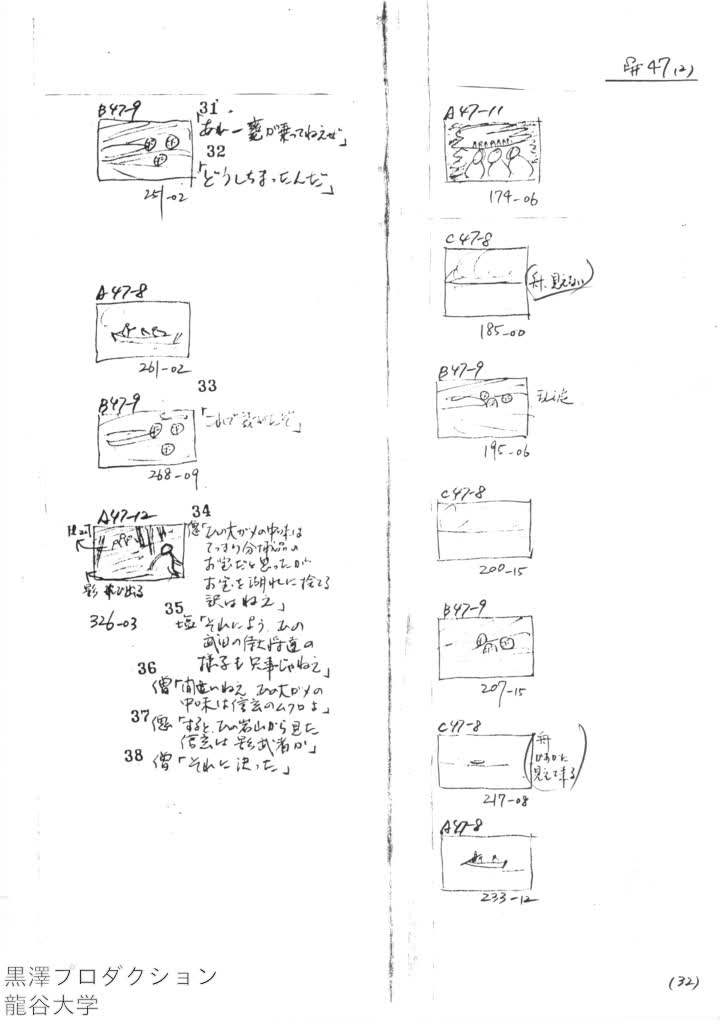 #47(2)
A47-11
174-06
C47-8
舟、見えない
185-00
B47-9
195-06
C47-8
200-15
B47-9
207-15
C47-8
舟
見えて来る
217-08
A47-8
233-12
B47-9
31
「あれー甕が乗ってねえぜ」
32
「どうしちまったんだ」
251-02
A47-8
261-02
33
B47-9
268-09
A47-12
影 飛び出る
326-03
34
「この大がめの中味は
てっきり分捕品の
お宝だと思ったが
お宝を湖水に捨てる
訳はねえ」
35
塩「それによう、この
武田の侍大将達の
様子も只事じゃねえ」
36
僧「間違いねえ この大がめの
中味は信玄のムクロよ」
37
「すると、この岩山から見た
信玄は影武者か」
38
僧「それに決った」
(32)
黒澤プロダクション
龍谷大学